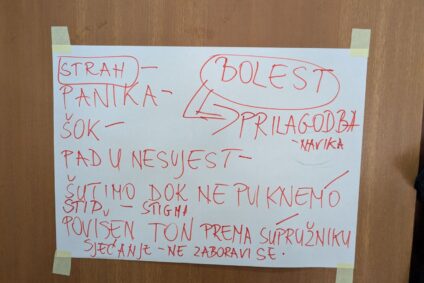 STRAH - BOLEST
PANIKA -
ŠOK - PRILAGODBA
- NAVIKA
PAD U NESVJEST -
ŠUTIMO DOK NE PUKNEMO
STID - STIGMA
POVIŠEN TON PREMA SUPRUŽNIKU
SJEĆANJE - NE ZABORAVI SE.